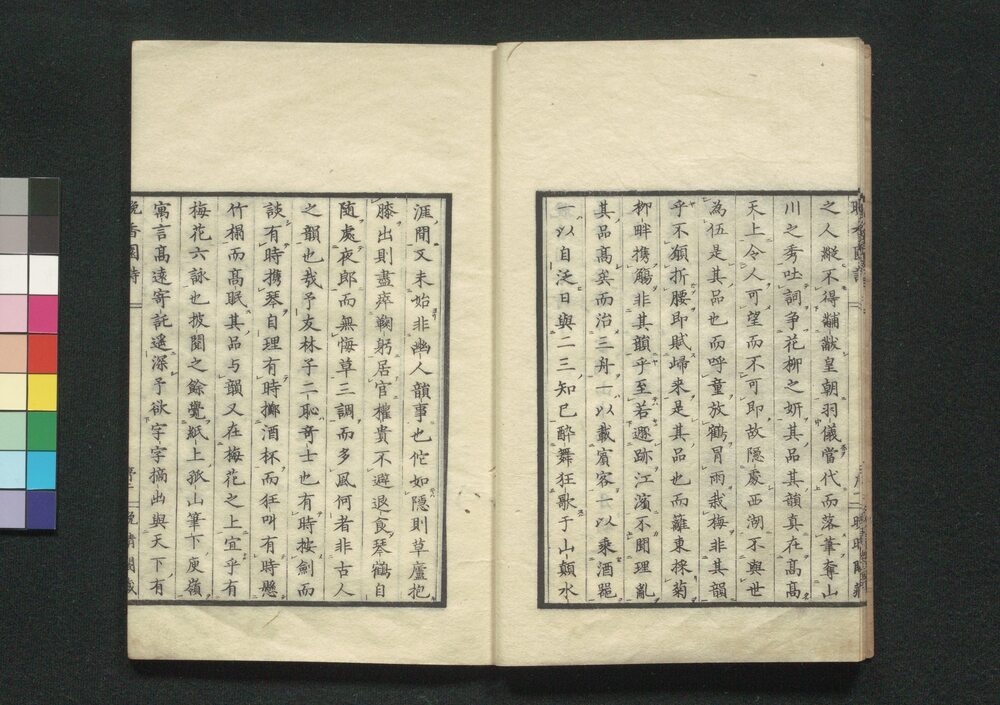 之人縱不得黼黻皇朝羽儀當代而落筆奪山
川之秀吐詞爭花柳之妍其品其韻真在髙髙
天上令人可望而不可即故隠處西湖不與世
為伍是其品也而呼童放鶴冒雨栽梅非其韻
乎不願折腰即賦歸来是其品也而籬東採菊
柳畔携觴非其韻乎至若遯跡江濱不聞理亂
其品髙矣而治三舟一以載賓客一以乗酒罌
一以自泛日與二三知己醉舞狂歌于山顛水
涯間又未始非幽人韻事也佗如隠則草廬抱
膝出則盡瘁鞠躬居官權貴不避退食琴鶴自
随處夜郎而無悔草三調而多風何者非古人
之韻也哉予友林子二恥竒士也有時按劍而
談有時携琴自理有時擲酒杯而狂叫有時懸
竹榻而髙眠其品与韻又在梅花之上宜乎有
梅花六詠也披閲之餘覺紙上孤山筆下庾嶺
寓言髙遠寄託遥深予欲字字摘出與天下有
晩香園詩 序 二 晩晴閣藏